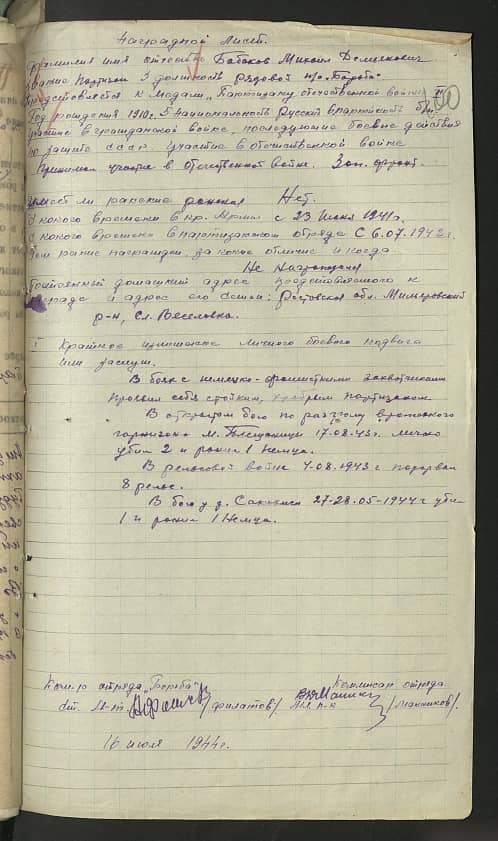 Наградной лист.
Фамилия имя отчество Бабаков Михаил Демьянович
Звание Партизан 3 должность рядовой п/о "Борьба"
Представляется к медали "Партизану отечественной войны" II
Год рождения 1910 г. 5 Национальность русский 6 партийность б/п
участие в гражданской войне, последующие боевые действия
по защите СССР, участие в отечественной войне
Принимал участие в отечественной войне. Зап. фронт.
Имеет ли ранение Нет.
С какого времени в кр. Армии с 23 июня 1941 г.
С какого времени в партизанском отряде С 6.07.1942 г.
Чем ранее награжден, за какие отличие и когда
Не награждался
Постоянный домашний адрес представляемого к
награде и адрес его семьи: Ростовская обл. Миллеровский
р-н, Сл. Веселовка.
Краткое изложение личного боевого подвига
или заслуг.
В боях с немецко-фашистскими захватчиками
проявил себя стойким, храбрым партизаном.
В открытом бою по разгрому вражеского
гарнизона м. Плещаницы 17.08.43 г. лично
убил 2 и ранил 1 немца.
В рельсовой войне 4.08.1943 г. подорвал
8 рельс.
В бою у д. 27-28.05-1944 г. убил
1 и ранил 1 немца.
Ком-р отряда "Борьба" Комиссар отряда
ст. л-т. /Филатов/ /Манников/.
16 июля 1944 г.